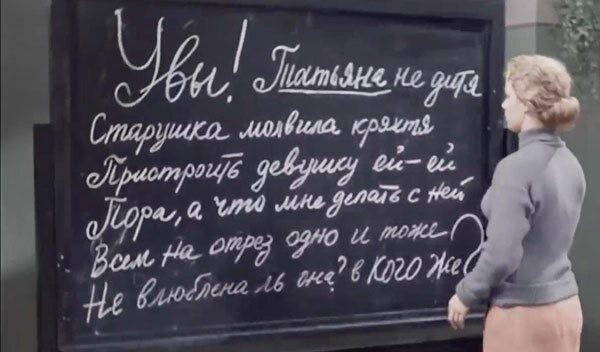 Увы! Татьяна не дитя
Старушка молвила кряхтя
Пристроить девушку ей-ей
Пора, а что мне делать с ней
Всем на отрез одно и тоже
Не влюблена ль она? в КОГО же?